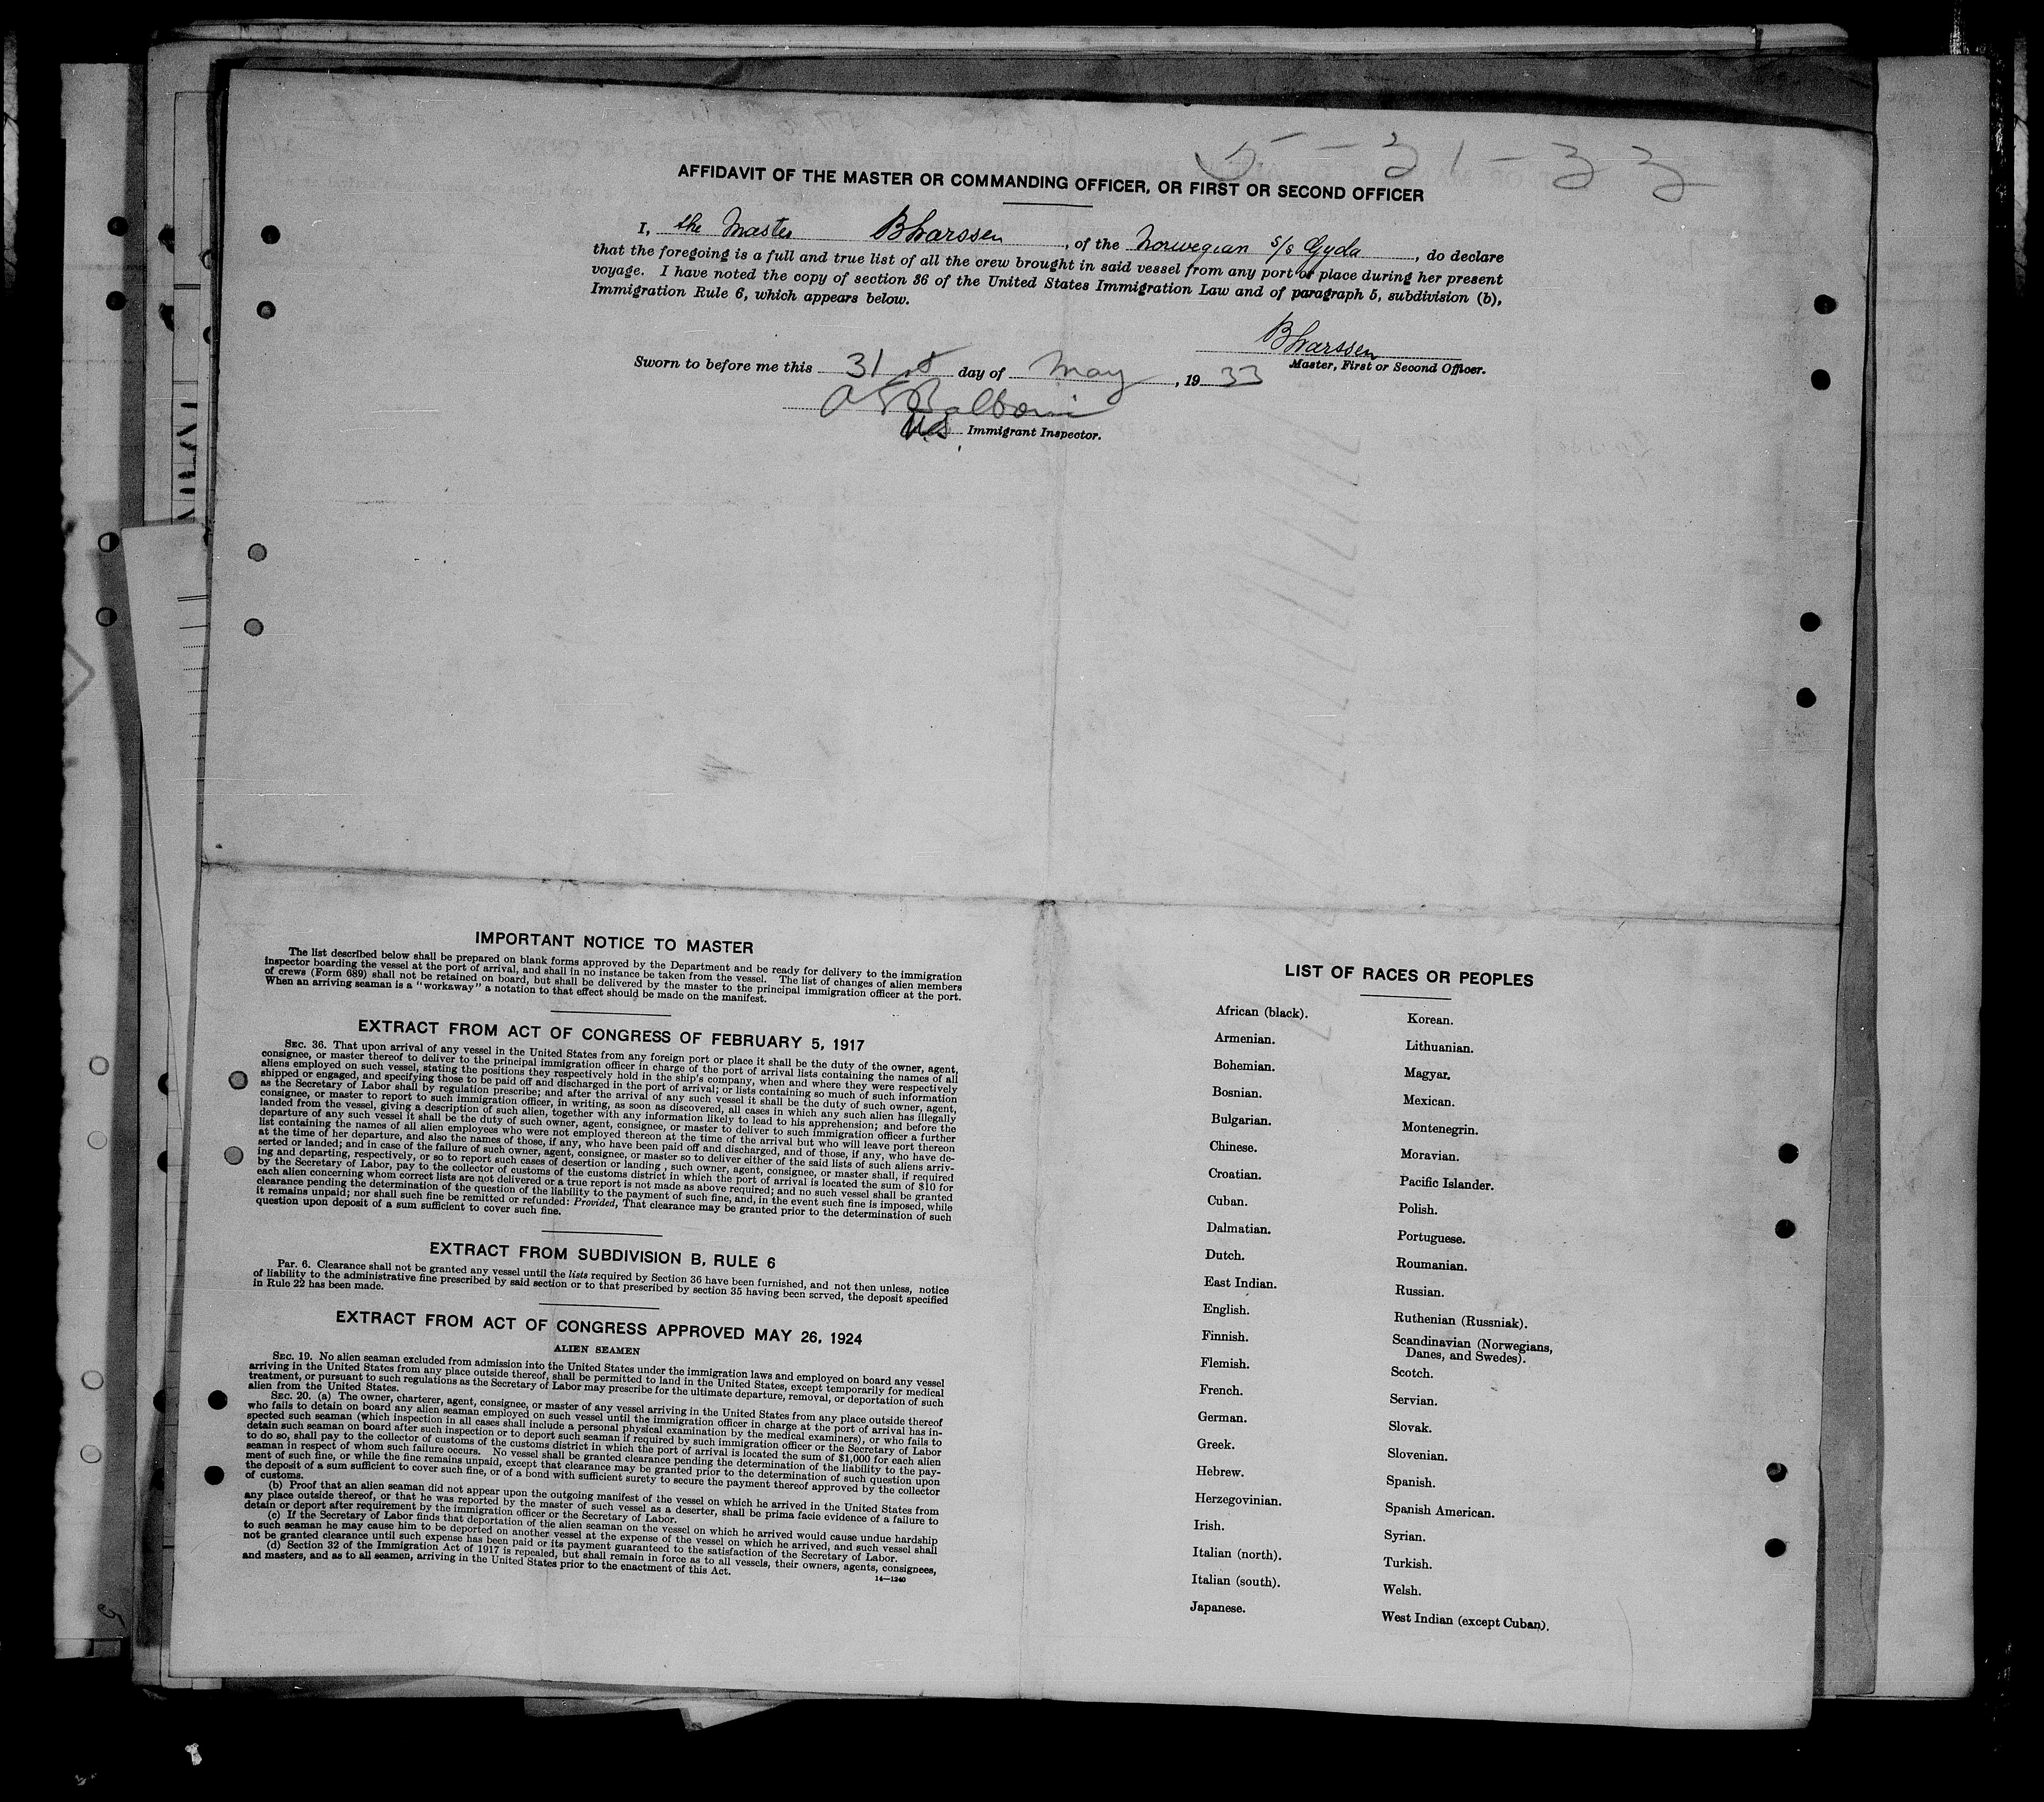 5-31-33
AFFIDAVIT OF THE MASTER OR COMMANDING OFFICER, OR FIRST OR SECOND OFFICER
I, the Master B Larssen, of the Norwegian s/s Gyda, do declare
that the foregoing is a full and true list of all the crew brought in said vessel from any port or place during her present
voyage. I have noted the copy of section 36 of the United States Immigration Law and of paragraph 5, subdivision (b),
Immigration Rule 6, which appears below.
B Larssen
Master, First or Second Officer.
Sworn to before me this 31st day of May, 1933
US Immigrant Inspector.
IMPORTANT NOTICE TO MASTER
The list described below shall be prepared on blank forms approved by the Department and be ready for delivery to the immigration
inspector boarding the vessel at the port of arrival, and shall in no instance be taken from the vessel. The list of changes of alien members
of crews (Form 689) shall not be retained on board, but shall be delivered by the master to the principal immigration officer at the port.
When an arriving seaman is a "workaway" a notation to that effect should be made on the manifest.
EXTRACT FROM ACT OF CONGRESS OF FEBRUARY 5, 1917
SEC. 36. That upon arrival of any vessel in the United States from any foreign port or place it shall be the duty of the owner, agent,
consignee, or master thereof to deliver to the principal immigration officer in charge of the port of arrival lists containing the names of all
aliens employed on such vessel, stating the positions they respectively hold in the ship's company, when and where they were respectively
shipped or engaged, and specifying those to be paid off and discharged in the port of arrival; or lists containing so much of such information
as the Secretary of Labor shall by regulation prescribe; and after the arrival of any such vessel it shall be the duty of such owner, agent,
consignee, or master to report to such immigration officer, in writing, as soon as discovered, all cases in which any such alien has illegally
landed from the vessel, giving a description of such alien, together with any information likely to lead to his apprehension; and before the
departure of any such vessel it shall be the duty of such owner, agent, consignee, or master to deliver to such immigration officer a further
list containing the names of all alien employees who were not employed thereon at the time of the arrival but who will leave port thereon
at the time of her departure, and also the names of those, if any, who have been paid off and discharged, and of those, if any, who have de-
serted or landed; and in case of the failure of such owner, agent, consignee, or master so to deliver either of the said lists of such aliens arriv-
ing and departing, respectively, or so to report such cases of desertion or landing , such owner, agent, consignee, or master shall, if required
by the Secretary of Labor, pay to the collector of customs of the customs district in which the port of arrival is located the sum of $10 for
each alien concerning whom correct lists are not delivered or a true report is not made as above required; and no such vessel shall be granted
clearance pending the determination of the question of the liability to the payment of such fine, and, in the event such fine is imposed, while
it remains unpaid; nor shall such fine be remitted or refunded: Provided, That clearance may be granted prior to the determination of such
question upon deposit of a sum sufficient to cover such fine.
EXTRACT FROM SUBDIVISION B, RULE 6
Par. 6. Clearance shall not be granted any vessel until the lists required by Section 36 have been furnished, and not then unless, notice
of liability to the administrative fine prescribed by said section or to that prescribed by section 35 having been served, the deposit specified
in Rule 22 has been made.
EXTRACT FROM ACT OF CONGRESS APPROVED MAY 26, 1924
ALIEN SEAMEN
SEC. 19. No alien seaman excluded from admission into the United States under the immigration laws and employed on board any vessel
arriving in the United States from any place outside thereof, shall be permitted to land in the United States, except temporarily for medical
treatment, or pursuant to such regulations as the Secretary of Labor may prescribe for the ultimate departure, removal, or deportation of such
alien from the United States.
SEC. 20. (a) The owner, charterer, agent, consignee, or master of any vessel arriving in the United States from any place outside thereof
who fails to detain on board any alien seaman employed on such vessel until the immigration officer in charge at the port of arrival has in-
spected such seaman (which inspection in all cases shall include a personal physical examination by the medical examiners), or who fails to
detain such seaman on board after such inspection or to deport such seaman if required by such immigration officer or the Secretary of Labor
to do so, shall pay to the collector of customs of the customs district in which the port of arrival is located the sum of $1,000 for each alien
seaman in respect of whom such failure occurs. No vessel shall be granted clearance pending the determination of the liability to the pay-
ment of such fine, or while the fine remains unpaid, except that clearance may be granted prior to the determination of such question upon
the deposit of a sum sufficient to cover such fine, or of a bond with sufficient surety to secure the payment thereof approved by the collector
of customs.
(b) Proof that an alien seaman did not appear upon the outgoing manifest of the vessel on which he arrived in the United States from
any place outside thereof, or that he was reported by the master of such vessel as a deserter, shall be prima facie evidence of a failure to
detain or deport after requirement by the immigration officer or the Secretary of Labor.
(c) If the Secretary of Labor finds that deportation of the alien seaman on the vessel on which he arrived would cause undue hardship
to such seaman he may cause him to be deported on another vessel at the expense of the vessel on which he arrived, and such vessel shall
not be granted clearance until such expense has been paid or its payment guaranteed to the satisfaction of the Secretary of Labor.
(d) Section 32 of the Immigration Act of 1917 is repealed, but shall remain in force as to all vessels, their owners, agents, consignees,
and masters, and as to all seamen, arriving in the United States prior to the enactment of this Act.
14—1240
LIST OF RACES OR PEOPLES
African (black).
Armenian.
Bohemian.
Bosnian.
Bulgarian.
Chinese.
Croatian.
Cuban.
Dalmatian.
Dutch.
East Indian.
English.
Finnish.
Flemish.
French.
German.
Greek.
Hebrew.
Herzegovinian.
Irish.
Italian (north).
Italian (south).
Japanese.
Korean.
Lithuanian.
Magyar.
Mexican.
Montenegrin.
Moravian.
Pacific Islander.
Polish.
Portuguese.
Roumanian.
Russian.
Ruthenian (Russniak).
Scandinavian (Norwegians,
Danes, and Swedes).
Scotch.
Servian.
Slovak.
Slovenian.
Spanish.
Spanish American.
Syrian.
Turkish.
Welsh.
West Indian (except Cuban).